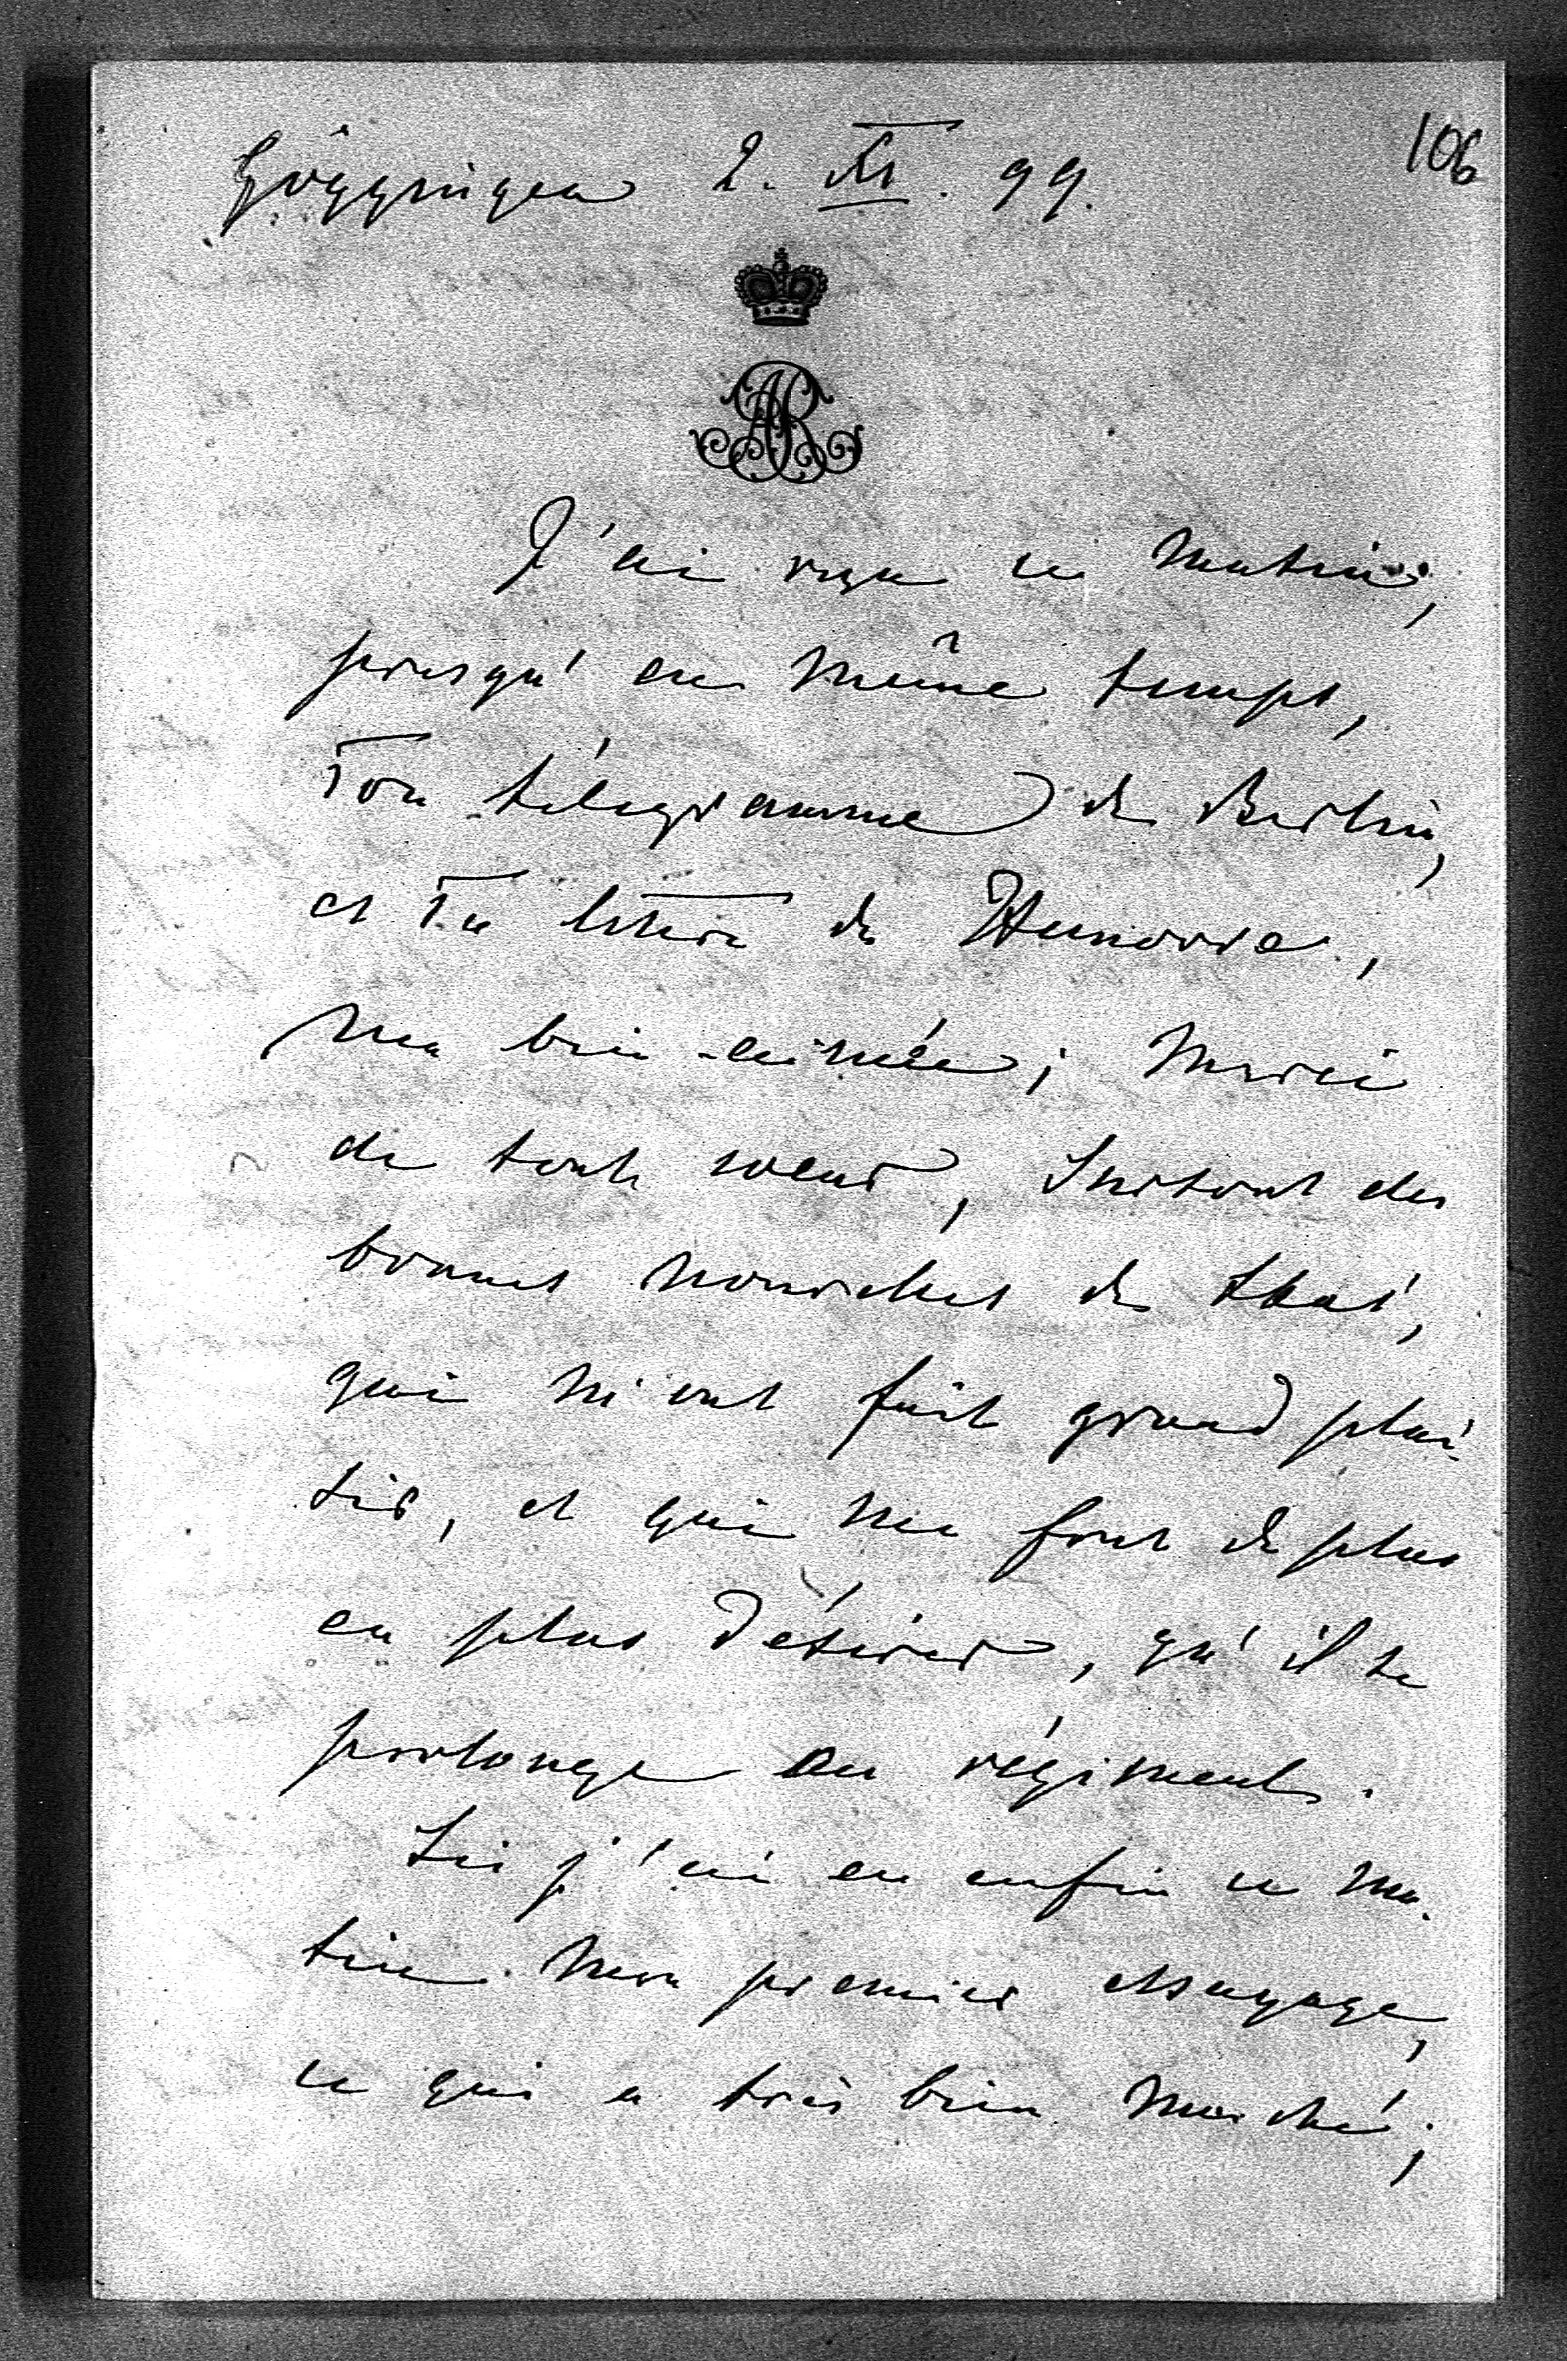 Göggingen 2. XI. 99.
106
AR
J'ai reçu ce matin,
presqu'en même temps,
Ton télégramme de Berlin,
et Ta lettre de Hanovre,
ma bien-aimée; merci
de tout coeur, surtout des
bonnes nouvelles de
qui m'ont fait grand plai-
sir, et qui me font de plus
en plus désirer, qu'il se
prolonge au régiment.
Ici j'ai eu enfin ce ma-
tin mon premier essayage,
ce qui a très bien marché;